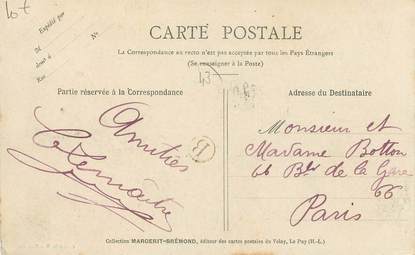 10f
Expédié par
N°
M
demt à
Rue
CARTE POSTALE
La Correspondance au recto n'est pas acceptée par tous les Pays Étrangers
(Se renseigner à la Poste)
43
Partie réservée à la Correspondance
Amitiés
Lemaître
B
Adresse du Destinataire
Monsieur et
Madame Botton
66 Bd de la Gare
66
Paris
Collection MARGERIT-BRÉMOND, éditeur des cartes postales du Velay, Le Puy (H.-L.)